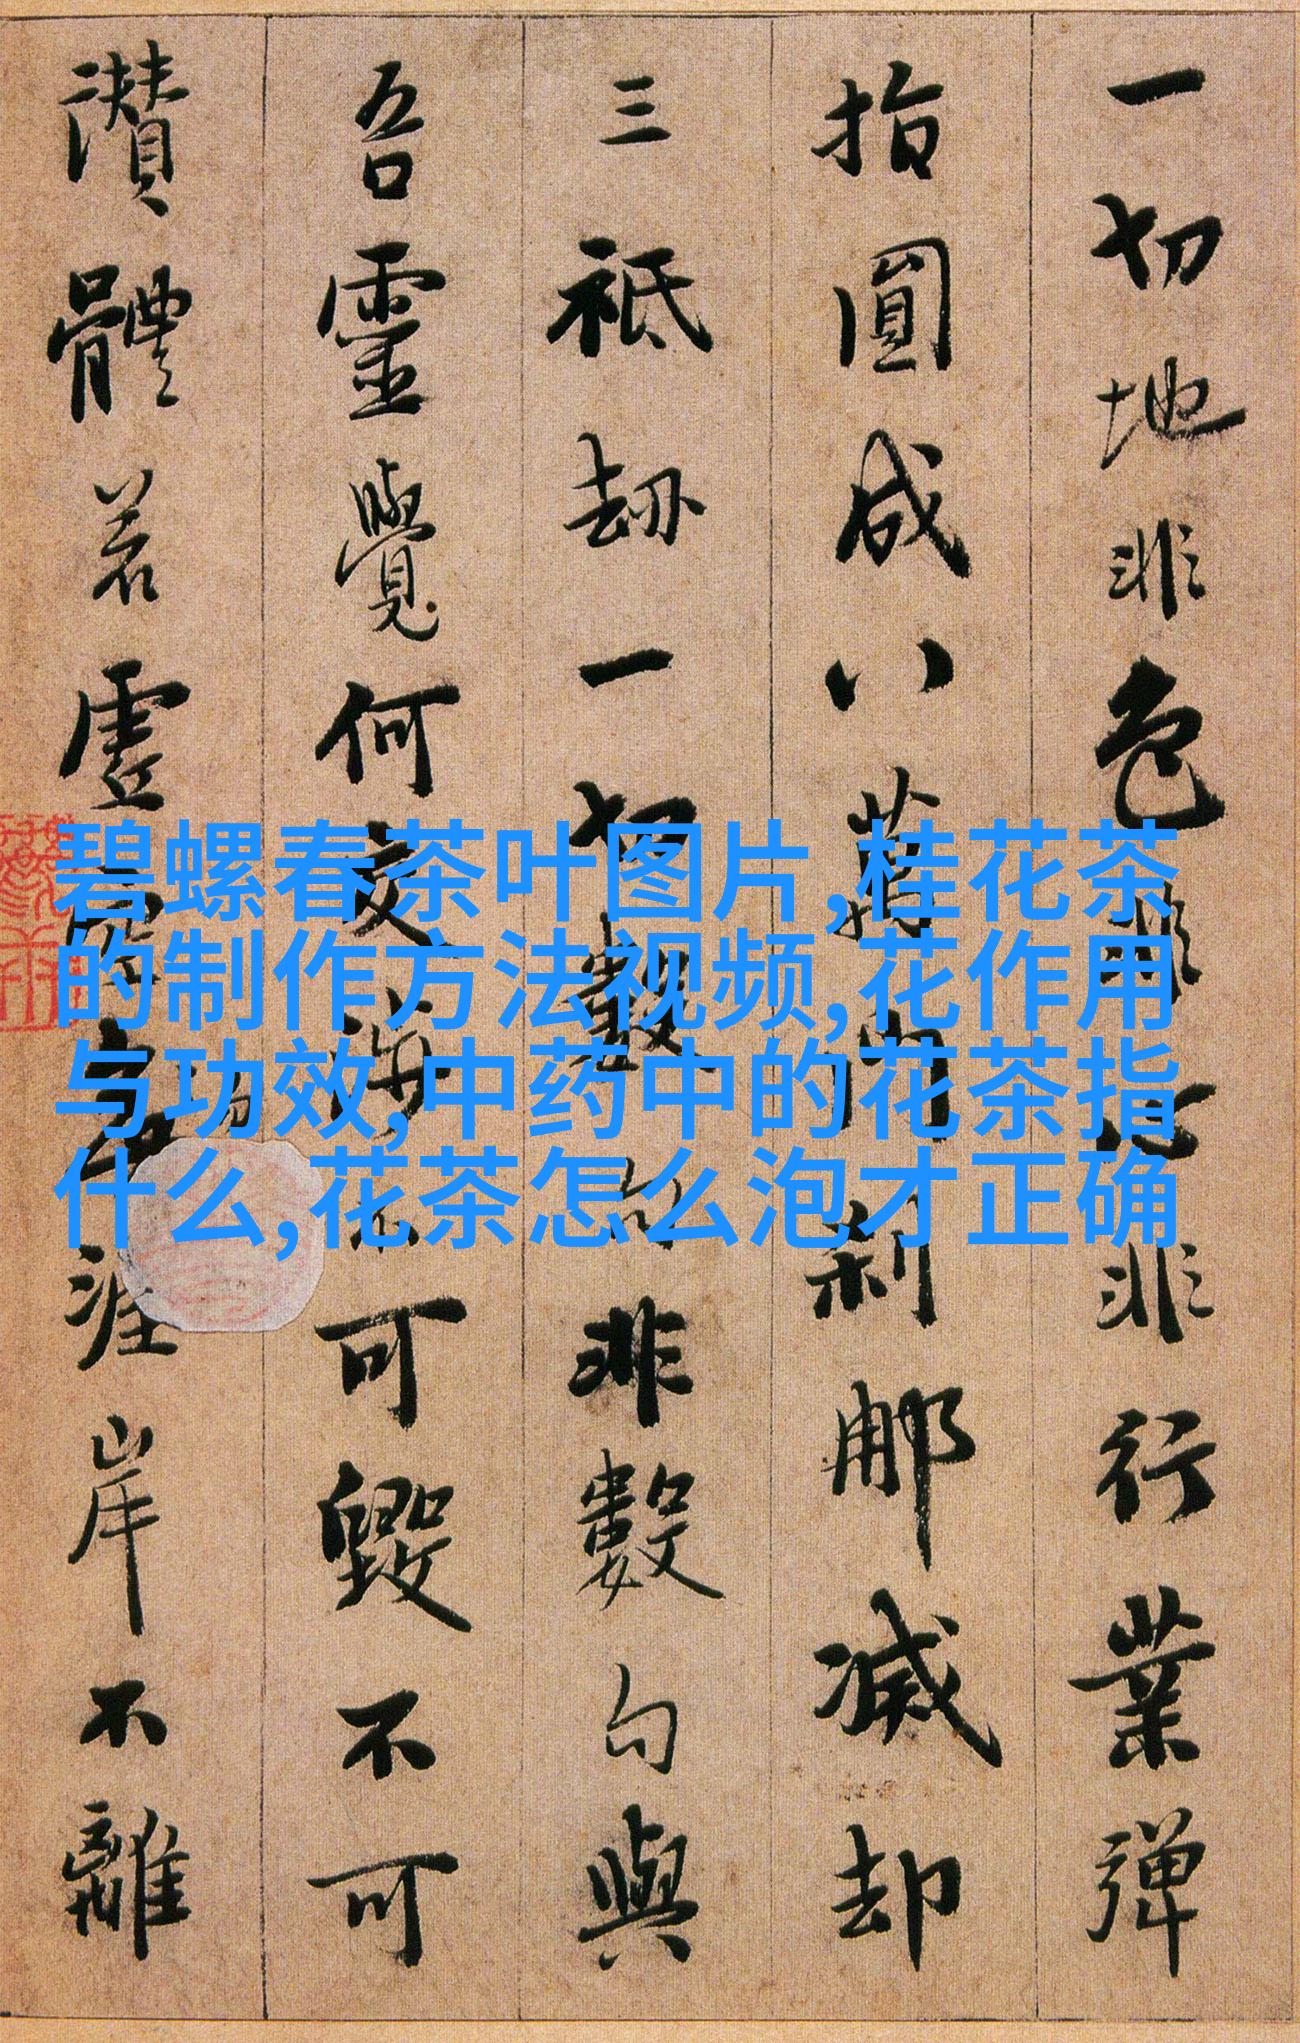 一切地非色非心非行業彈
指圓成八萬門刹那滅却
三祇劫一切數句非數句與
吾靈覺何交涉不可毀不可
讚體若虛空勿涯岸不離
碧螺春茶叶图片,桂花茶
的制作方法视频,花作用
与功效,中药中的花茶指
什么,花茶怎么泡才正确